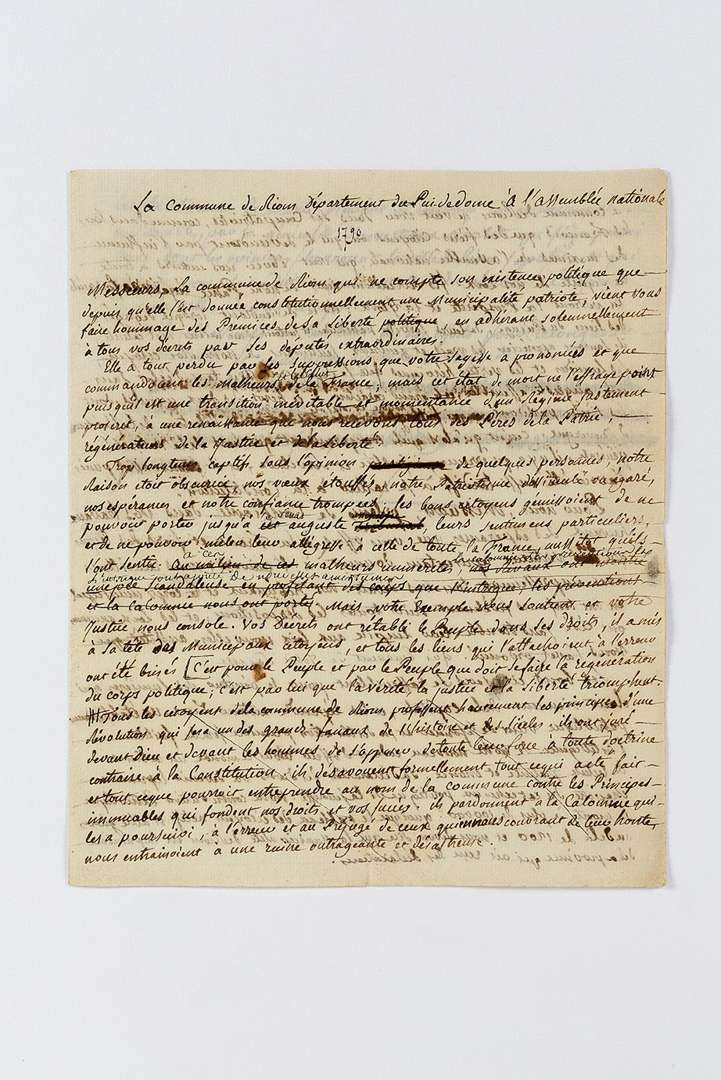 La Commune de Riom Département du Pui de dome à l'assemblée nationale
1790
Messieurs, La commune de Riom qui ne compte son existence politique que
depuis qu'elle s'est donnée constitutionnellement une Municipalité patriote, vient vous
faire hommage des Premices de sa Liberté politique, en adhérant solemnellement
à tous vos décrets par ses députés extraordinaires.
Elle a tout perdu par les suppressions que votre sagesse a prononcées et que
commandoient les malheurs de la France, mais cet état de mort ne l'effraye point
puisqu'il est une transition inévitable et momentanée d'un régime justement
proscrit, à une renaissance que nous des Pères de la Patrie,
régénérateurs de la Justice et de la liberté
Trop longtems captifs sous l'opinion de quelques personnes, notre
Raison etoit obscurcie, nos vœux etouffés, notre Patriotisme égaré,
nos espérances et notre confiance trompées; les bons citoyens gémissoient de ne
pouvoir porter jusqu'à cet auguste leurs sentimens particuliers,
et de ne pouvoir mêler leur allégresse à celle de toute la France aussitôt qu'ils
l'ont sentie. à ces
au milieu de ces malheurs immérités,
une voie scandaleuse en profitant des coups que l'intrigue, les préventions
et la calomnie nous ont portés. Mais votre exemple nous soutient et votre
Justice nous console. Vos Decrets ont rétabli le Peuple dans ses droits, il a mis
à sa tête des Municipaux citoyens, et tous les liens qui l'attachoient à l'erreur
ont été brisés [C'est pour le Peuple et par le Peuple que doit se faire la régénération
du corps politique, c'est par lui que la vérité, la justice et la liberté triomphent.
Tous les citoyens de la commune de Riom professent hautement les principes d'une
Révolution qui sera un des grands fanaux de l'histoire et des siecles. ils ont juré
devant Dieu et devant les hommes de s'opposer de toute leur force à toute doctrine
contraire à la Constitution; ils désavouent formellement tout ce qui a été fait
et tout ce que pourroit entreprendre au nom de la commune contre les Principes
immuables qui fondent nos droits et vos succès. ils pardonnent à la Calomnie qui
les a poursuivi, à l'erreur et au Préjugé de ceux qui nous couvrant de leur honte,
nous entrainoient à une ruine outrageante et désastreuse.